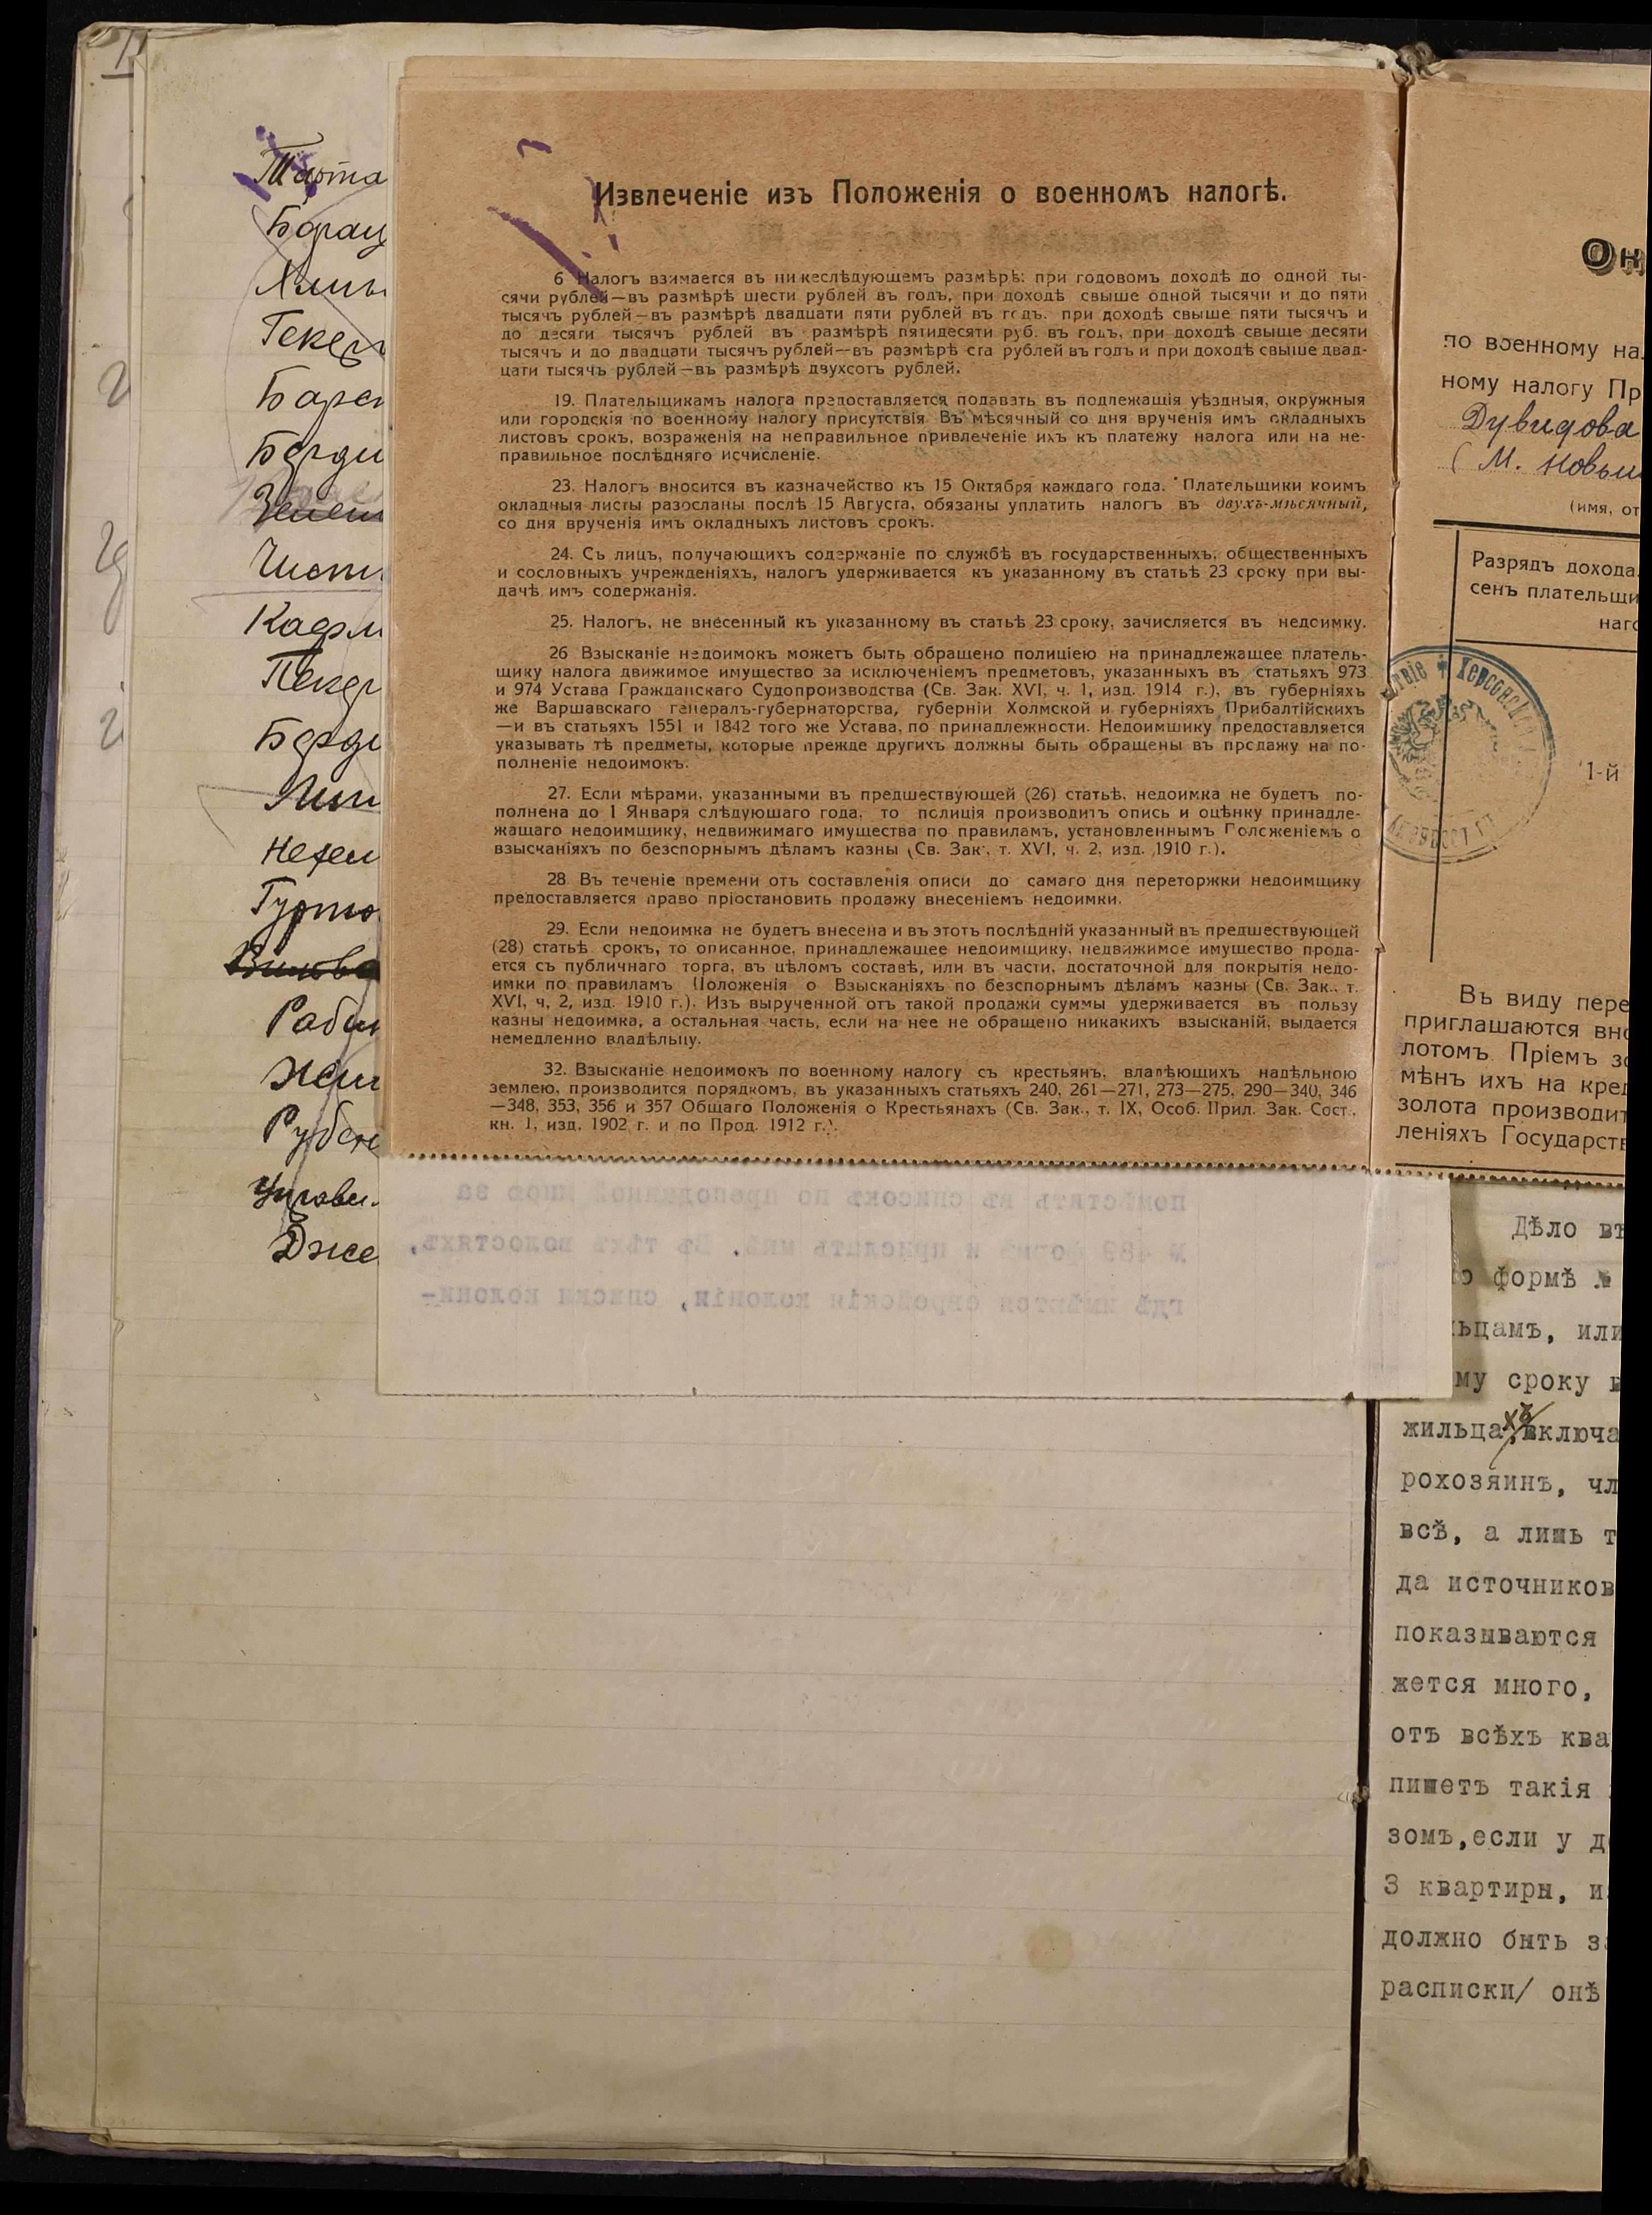 Тарта
Борац
Хмель
Гекер
Барен
Берди
Зелен
Чист
Кафм
Пекер
Берди
Лит
Нехем
Гурто
Раби
Жит
Рубен
Дже
Извлеченіе изъ Положенія о военномъ налогѣ.
6 Налогъ взимается въ нижеслѣдующемъ размѣрѣ: при годовомъ доходѣ до одной ты-
сячи рублей—въ размѣрѣ шести рублей въ годъ, при доходѣ свыше одной тысячи и до пяти
тысячъ рублей—въ размѣрѣ двадцати пяти рублей въ годъ. при доходѣ свыше пяти тысячъ и
до десяти тысячъ рублей въ размѣрѣ пятидесяти руб. въ годъ, при доходѣ свыше десяти
тысячъ и до двадцати тысячъ рублей—въ размѣрѣ ста рублей въ годъ и при доходѣ свыше двад-
цати тысячъ рублей—въ размѣрѣ двухсотъ рублей.
19. Плательщикамъ налога предоставляется подавать въ подлежащія уѣздныя, окружныя
или городскія по военному налогу присутствія. Въ мѣсячный со дня врученія имъ окладныхъ
листовъ срокъ, возраженія на неправильное привлеченіе ихъ къ платежу налога или на не-
правильное послѣдняго исчисленіе.
23. Налогъ вносится въ казначейство къ 15 Октября каждаго года. Плательщики коимъ
окладныя листы разосланы послѣ 15 Августа, обязаны уплатить налогъ въ двухъ-мѣсячный,
со дня врученія имъ окладныхъ листовъ срокъ.
24. Съ лицъ, получающихъ содержаніе по службѣ въ государственныхъ, общественныхъ
и сословныхъ учрежденіяхъ, налогъ удерживается къ указанному въ статьѣ 23 сроку при вы-
дачѣ имъ содержанія.
25. Налогъ, не внесенный къ указанному въ статьѣ 23 сроку, зачисляется въ недоимку.
26 Взысканіе недоимокъ можетъ быть обращено полиціею на принадлежащее платель-
щику налога движимое имущество за исключеніемъ предметовъ, указанныхъ въ статьяхъ 973
и 974 Устава Гражданскаго Судопроизводства (Св. Зак. XVI, ч. 1, изд. 1914 г.), въ губерніяхъ
же Варшавскаго генералъ-губернаторства, губерніи Холмской и губерніяхъ Прибалтійскихъ
—и въ статьяхъ 1551 и 1842 того же Устава, по принадлежности. Недоимщику предоставляется
указывать тѣ предметы, которые прежде другихъ должны быть обращены въ продажу на по-
полненіе недоимокъ.
27. Если мѣрами, указанными въ предшествующей (26) статьѣ, недоимка не будетъ по-
полнена до 1 Января слѣдующаго года, то полиція производитъ опись и оцѣнку принадле-
жащаго недоимщику, недвижимаго имущества по правиламъ, установленнымъ Положеніемъ о
взысканіяхъ по безспорнымъ дѣламъ казны (Св. Зак., т. XVI, ч. 2, изд. 1910 г.).
28. Въ теченіе времени отъ составленія описи до самаго дня переторжки недоимщику
предоставляется право пріостановить продажу внесеніемъ недоимки.
29. Если недоимка не будетъ внесена и въ этотъ послѣдній указанный въ предшествующей
(28) статьѣ срокъ, то описанное, принадлежащее недоимщику, недвижимое имущество прода-
ется съ публичнаго торга, въ цѣломъ составѣ, или въ части, достаточной для покрытія недо-
имки по правиламъ Положенія о Взысканіяхъ по безспорнымъ дѣламъ казны (Св. Зак., т.
XVI, ч, 2, изд. 1910 г.). Изъ вырученной отъ такой продажи суммы удерживается въ пользу
казны недоимка, а остальная часть, если на нее не обращено никакихъ взысканій, выдается
немедленно владѣльцу.
32. Взысканіе недоимокъ по военному налогу съ крестьянъ, владѣющихъ надѣльною
землею, производится порядкомъ, въ указанныхъ статьяхъ 240, 261—271, 273—275, 290—340, 346
—348, 353, 356 и 357 Общаго Положенія о Крестьянахъ (Св. Зак., т. IX, Особ. Прил. Зак. Сост.,
кн. 1, изд. 1902 г. и по Прод. 1912 г.).
помѣстить въ списокъ по преподанной мною за
№ 489 формѣ и прислать мнѣ. Въ тѣхъ волостяхъ,
гдѣ имѣются еврейскія колоніи, списки колони-
Ок
по военному на
ному налогу Пр
Дувидова
(М. Новы
(имя, от
Разрядъ дохода
сенъ плательщи
наго
ствіе Херсонско
1-й
Въ виду пере
приглашаются вно
лотомъ. Пріемъ зо
мѣнъ ихъ на кред
золота производит
леніяхъ Государств
Дѣло въ
о формѣ №
льцамъ, или
му сроку в
жильцахъ включа
рохозяинъ, чл
всѣ, а лишь т
да источников
показываются
жется много,
отъ всѣхъ ква
пишетъ такія
зомъ,если у д
3 квартиры, и
должно быть з
расписки/ онѣ